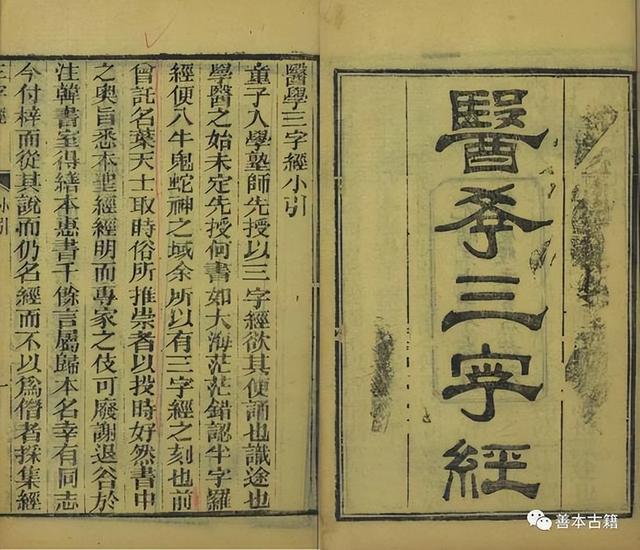 醫學三字經
醫學三字經小引
童子入學塾師先授以三字經欲其便誦也識途也
學醫之始未定先授何書如大海茫茫錯認半字羅
經便入牛鬼蛇神之域余所以有三字經之刻也前
曾託名葉天士取時俗所推崇者以投時好然書中
之奧旨悉本聖經經明而專家之伎可廢謝退谷於
注韓書室得繕本惠書千餘言屬歸本名幸有同志
今付梓而從其說而仍名經而不以為僭者採集經
三字經
小引
一
善本古籍